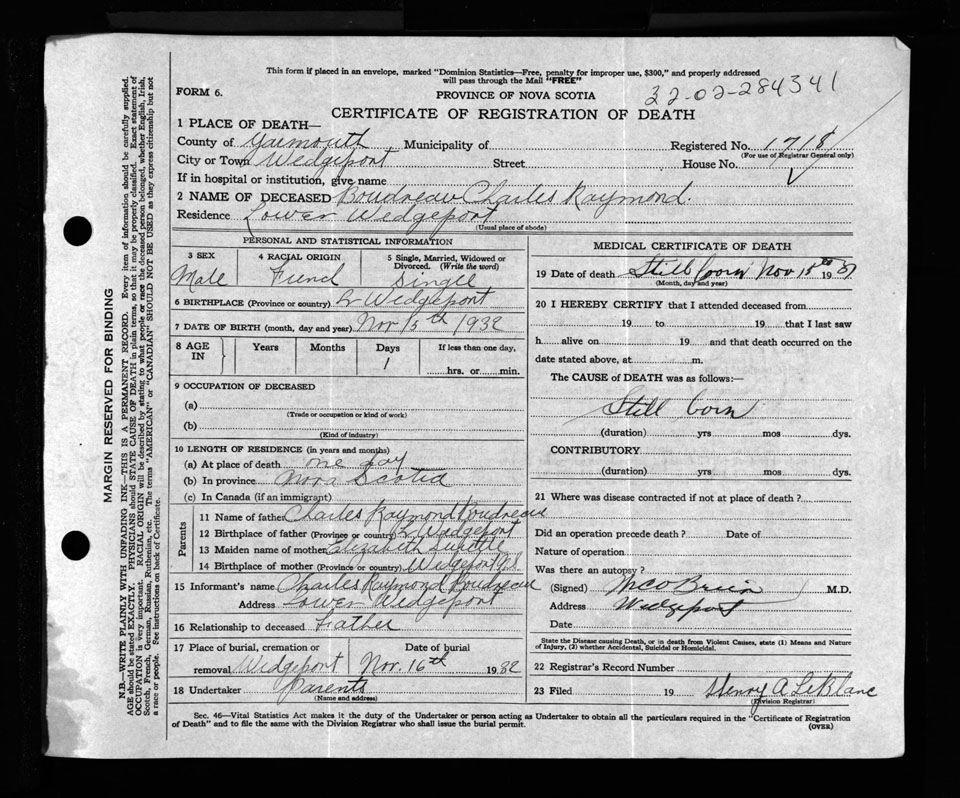 This form if placed in an envelope, marked "Dominion Statistics—Free, penalty for improper use, $300," and properly addressed
will pass through the Mail "FREE"
32-02-284341
FORM 6.
PROVINCE OF NOVA SCOTIA
CERTIFICATE OF REGISTRATION OF DEATH
1 PLACE OF DEATH—
County of Yarmouth Municipality of Registered No. 1718
(For use of Registrar General only)
City or Town Wedgeport Street House No.
If in hospital or institution, give name
2 NAME OF DECEASED Boudreau Charles Raymond.
Residence Lower Wedgeport
(Usual place of abode)
PERSONAL AND STATISTICAL INFORMATION
3 SEX 4 RACIAL ORIGIN 5 Single, Married, Widowed or Divorced. (Write the word)
Male French Single
6 BIRTHPLACE (Province or country) L Wedgeport
7 DATE OF BIRTH (month, day and year) Nov 15th 1932
8 AGE IN Years Months Days If less than one day,
1 hrs. or min.
9 OCCUPATION OF DECEASED
(a)
(Trade or occupation or kind of work)
(b)
(Kind of industry)
10 LENGTH OF RESIDENCE (in years and months)
(a) At place of death one day
(b) In province Nova Scotia
(c) In Canada (if an immigrant)
Parents
11 Name of father Charles Raymond Boudreau
12 Birthplace of father (Province or country) L Wedgeport
13 Maiden name of mother Elizabeth
14 Birthplace of mother (Province or country) Wedgeport N.S.
15 Informant's name Charles Raymond Boudreau
Address Lower Wedgeport
16 Relationship to deceased Father
17 Place of burial, cremation or removal Date of burial
Wedgeport Nov. 16th 1932
18 Undertaker Parents
(Name and address)
MEDICAL CERTIFICATE OF DEATH
19 Date of death Still born Nov 15th 19
(Month, day and year)
20 I HEREBY CERTIFY that I attended deceased from
19 to 19 that I last saw
h alive on 19 and that death occurred on the
date stated above, at m.
The CAUSE of DEATH was as follows:—
Still born
(duration) yrs mos dys.
CONTRIBUTORY
(duration) yrs mos dys.
21 Where was disease contracted if not at place of death?
Did an operation precede death? Date of
Nature of operation
Was there an autopsy?
(Signed) M.D.
Address Wedgeport
Date
State the Disease causing Death, or in death from Violent Causes, state (1) Means and Nature
of Injury, (2) whether Accidental, Suicidal or Homicidal.
22 Registrar's Record Number
23 Filed 19 Henry A LeBlanc
(Division Registrar)
Sec. 46—Vital Statistics Act makes it the duty of the Undertaker or person acting as Undertaker to obtain all the particulars required in the "Certificate of Registration
of Death" and to file the same with the Division Registrar who shall issue the burial permit.
(OVER)
MARGIN RESERVED FOR BINDING
N.B.—WRITE PLAINLY WITH UNFADING INK—THIS IS A PERMANENT RECORD. Every item of information should be carefully supplied.
AGE should be stated EXACTLY. PHYSICIANS should STATE CAUSE OF DEATH in plain terms, so that it may be properly classified. Exact statement of
OCCUPATION is very important. RACIAL ORIGIN will be described by stating to what people or race the deceased person belonged, whether English, Irish,
Scotch, French, German, Russian, Ruthenian, etc. The terms "AMERICAN" or "CANADIAN" SHOULD NOT BE USED as they express citizenship but not
a race or people. See instructions on back of Certificate.